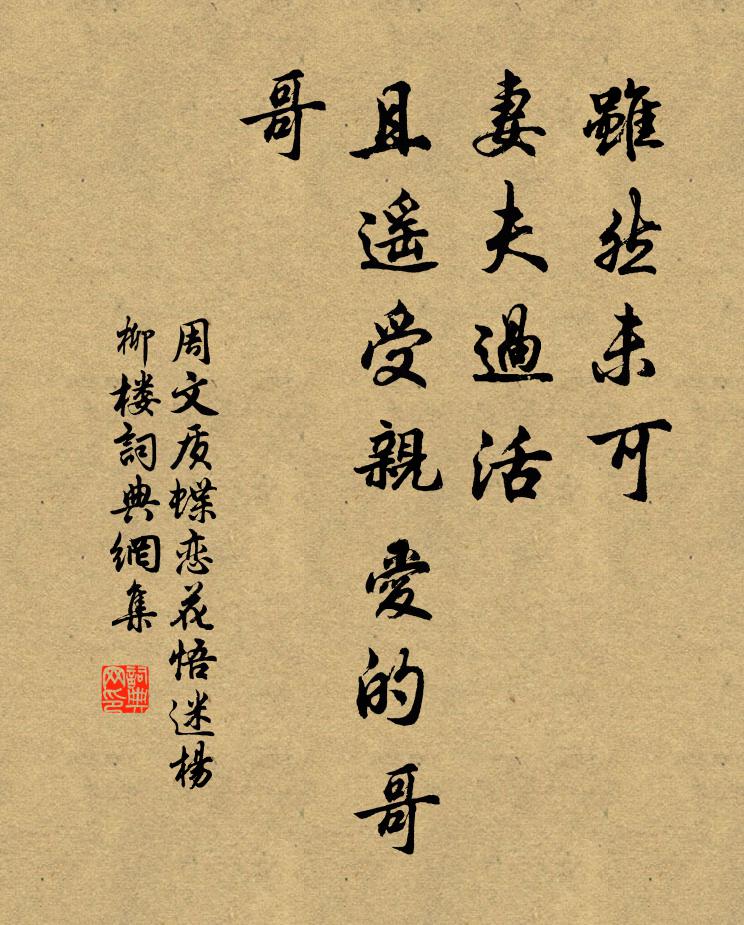 雖然未可
妻夫過活
且遥受親愛的哥
哥
周文质蝶恋花悟迷楊
柳楼詞典網集
詞典
网印